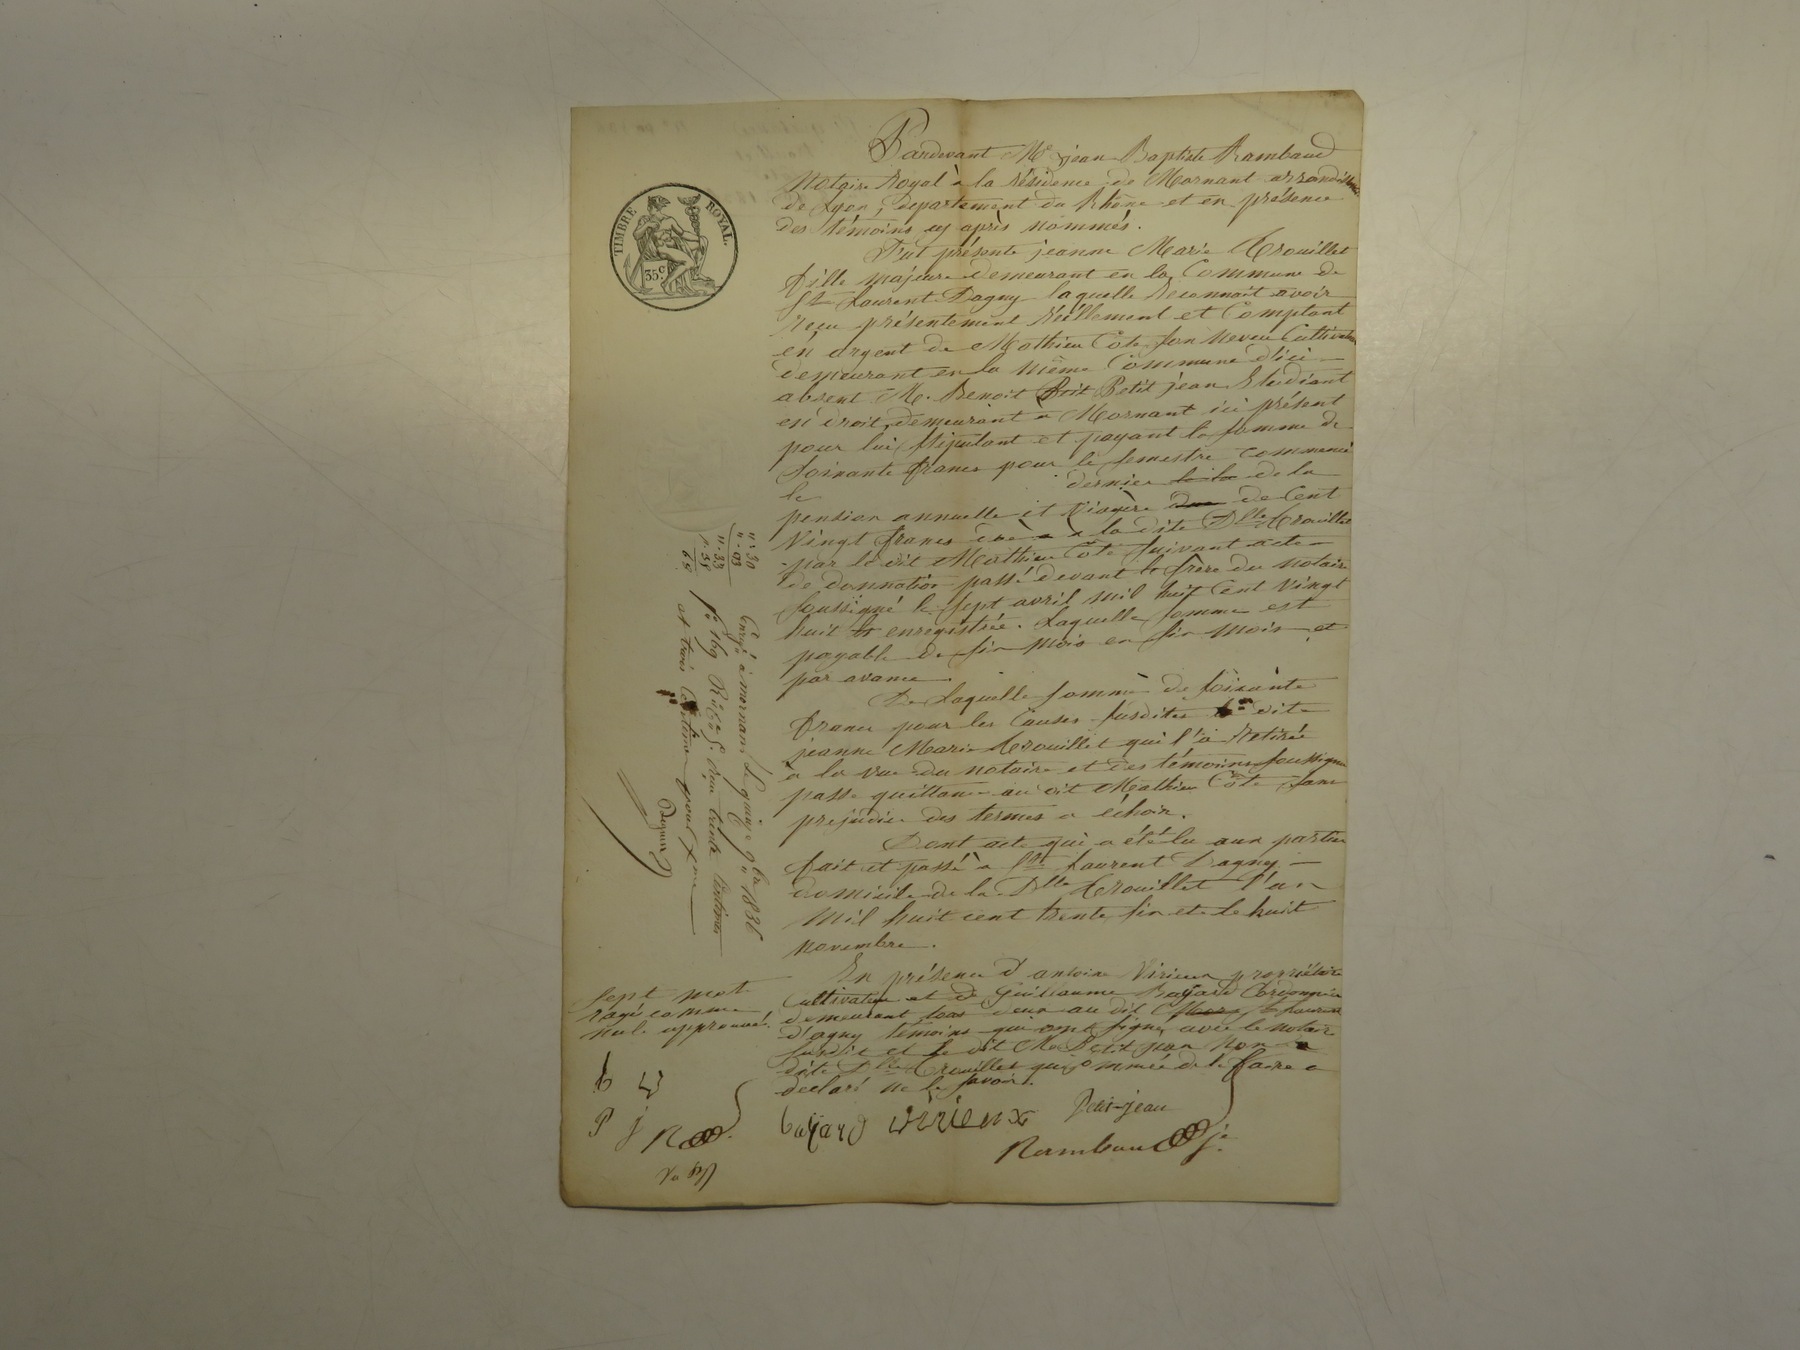 Pardevant Me jean Baptiste Rambaud
Notaire Royal à la résidence de Mornant arrondissement
de Lyon, département du Rhône et en présence
des témoins cy après nommés.
Fut présente jeanne Marie Crouillet
fille majeure demeurant en la Commune de
St Laurent Dagny laquelle Reconnait avoir
reçu présentement Réellement et Comptant
en argent de Mathieu Cote son Neveu Cultivateur
demeurant en la même Commune d'ici
absent M. Benoit Petit jean Etudiant
en droit, demeurant a Mornant ici présent
pour lui stipulant et payant la somme de
soixante francs pour le semestre commencé
le dernier de la
pension annuelle et Viagère de Cent
Vingt francs a la dite Dlle Crouillet
par le dit Mathieu Cote suivant acte
de donnation passé devant le frère du notaire
soussigné le sept avril mil huit Cent Vingt
huit enregistrée. Laquelle somme est
payable de six mois en six mois et
par avance.
De Laquelle somme de soixante
francs pour les Causes susdites la dite
jeanne Marie Crouillet qui l'a Retirée
à la vue du notaire et des témoins soussignés
passe quittance au dit Mathieu Cote sans
préjudice des termes a échoir.
Dont acte qui a été lu aux parties
fait et passé à St Laurent Dagny
domicile de la Dlle Crouillet l'an
Mil huit cent trente six et le huit
novembre.
En présence d'antoine Virieux propriétaire
Cultivateur et de Guillaume Bayard Cordonnier
demeurant tous deux au dit St Laurent
d'agny témoins qui ont signé avec le notaire
susdit et le dit Me Petit jean Non la
dite Dlle Crouillet qui sommée de le faire a
declaré ne le savoir.
bayard Virieux Petit-jean
Rambaud je
TIMBRE ROYAL.
35 c.
Engté à mornant Le quinze 9bre 1836
fo 169 Ro Reçu trente Centimes
et trois Centimes pour
sept mots
rayés comme
nuls approuvés.
b V
P j R